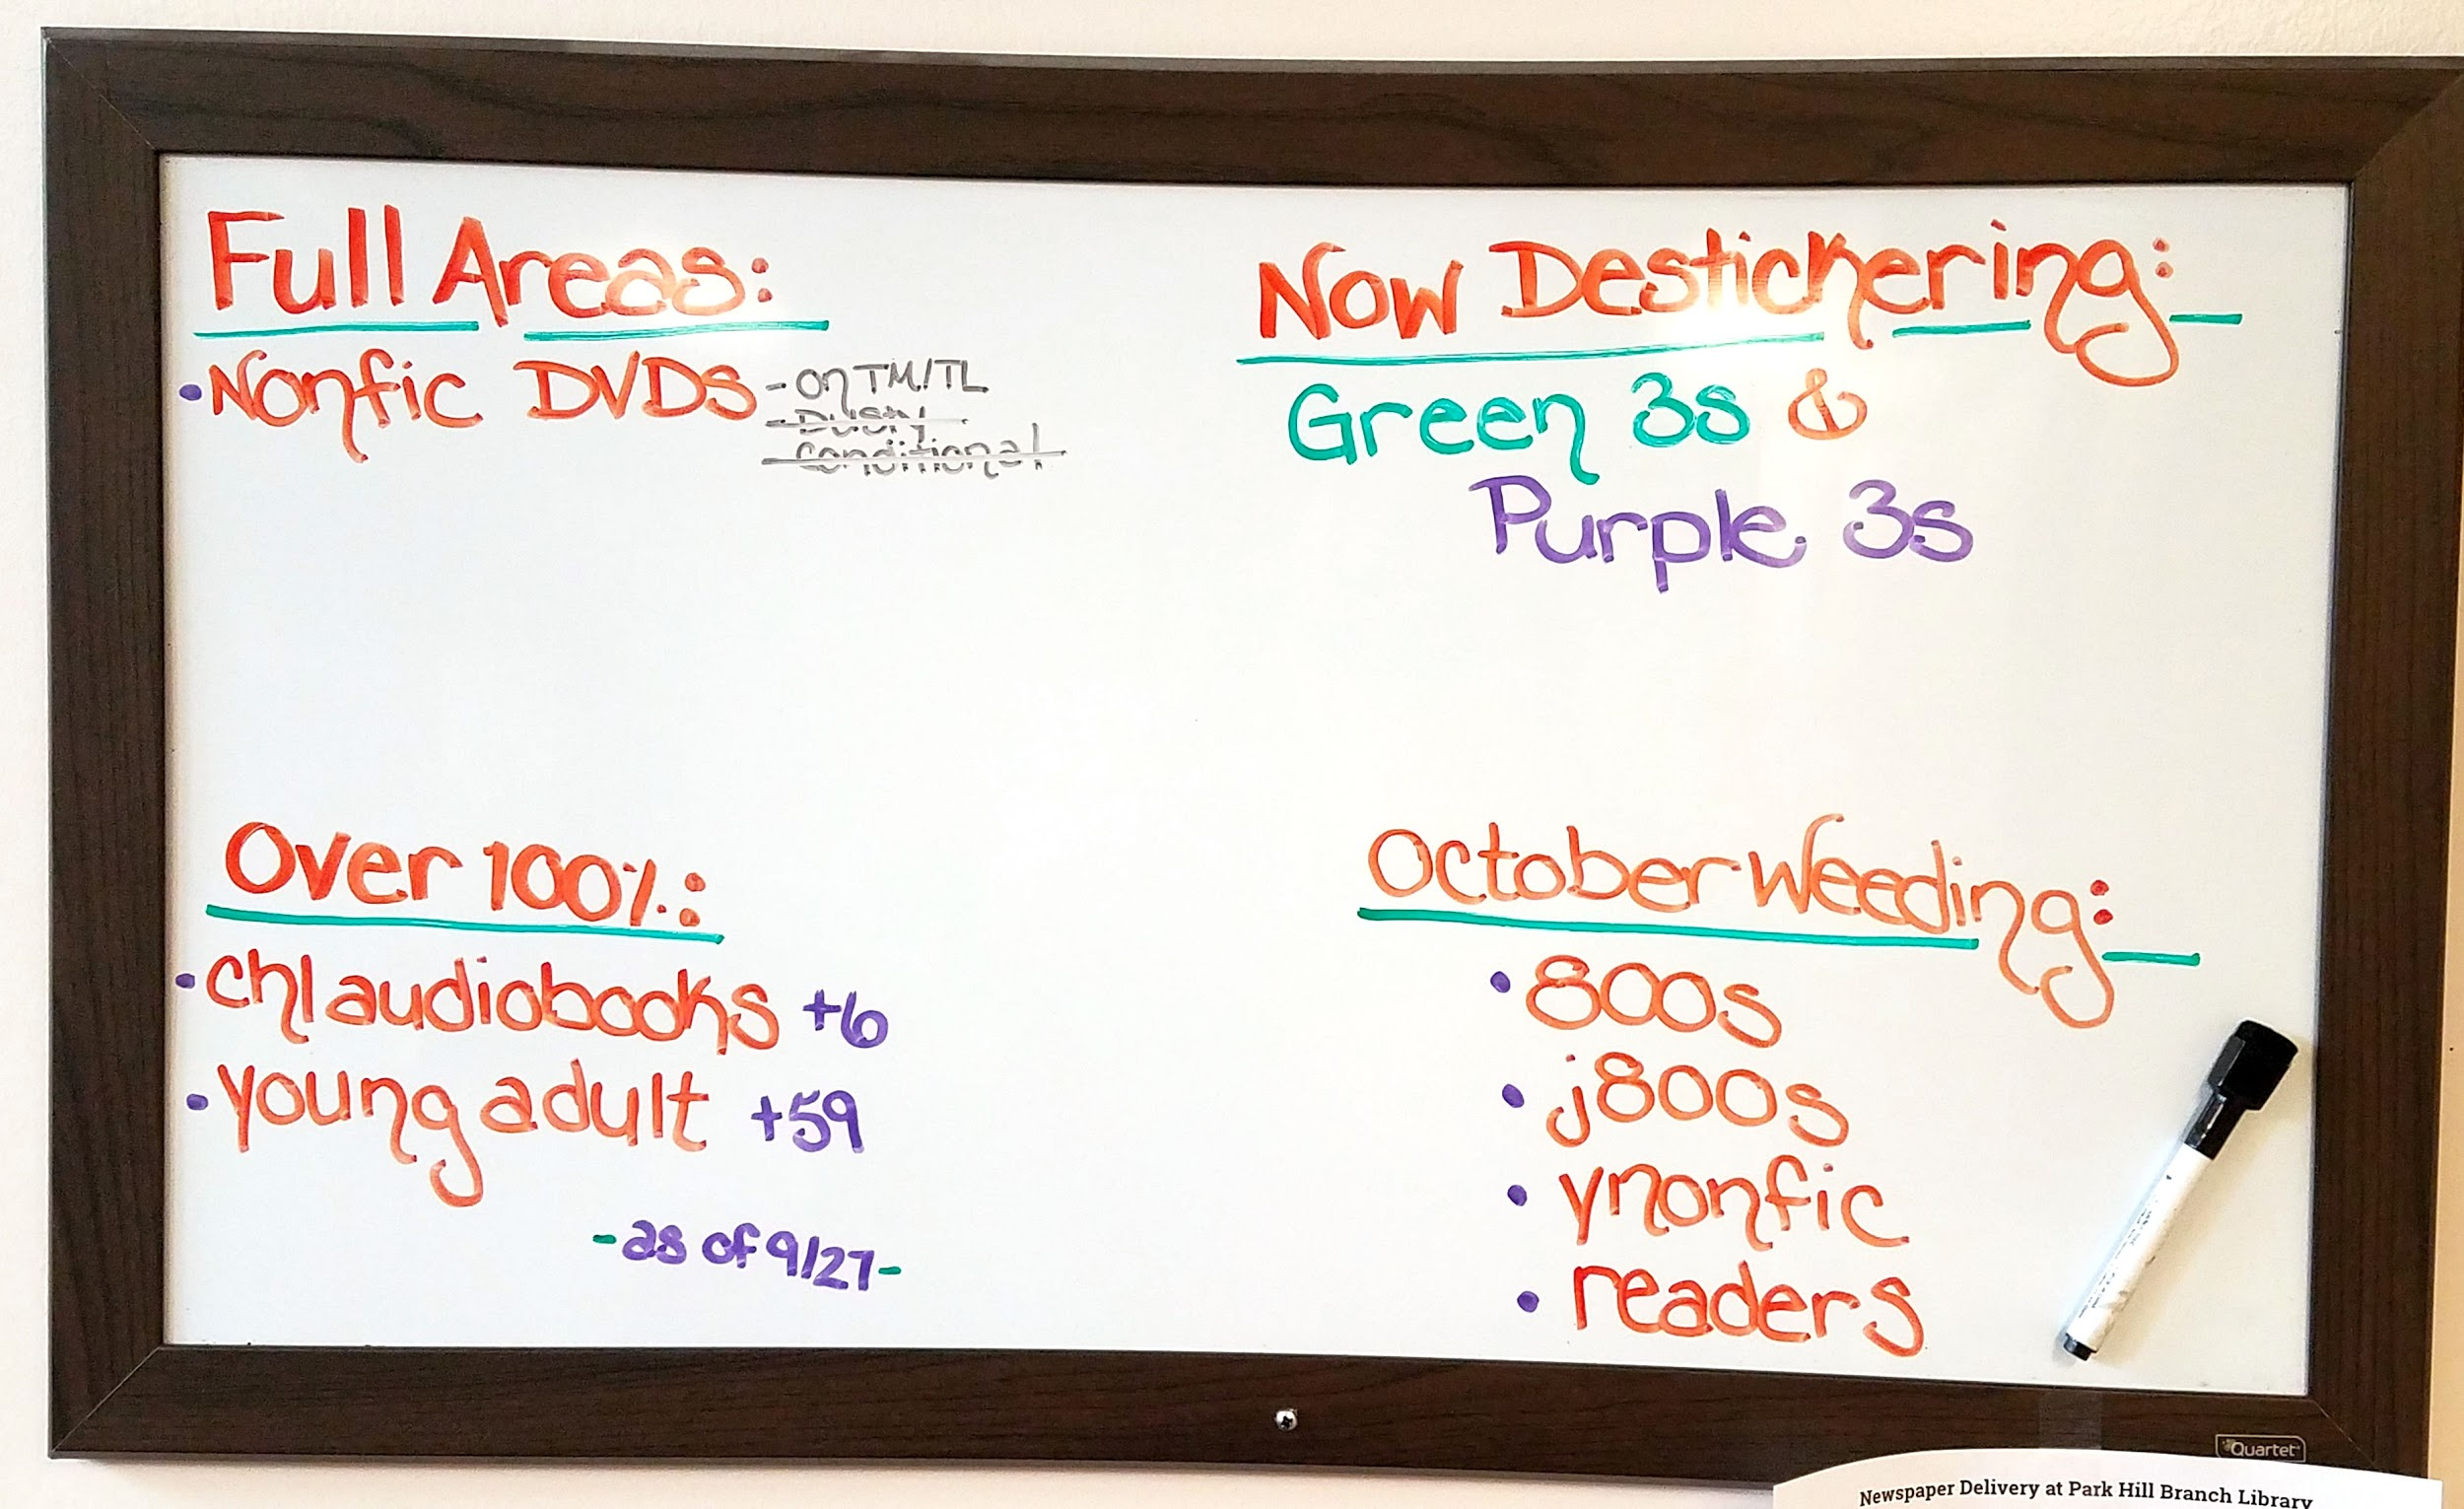 Full Areas:
•Nonfic DVDS -on TM/TL
-Dusty
Conditional
Now Destickering:
Green 3s &
Purple 3s
Over 100%:
•chl audiobooks +6
•young adult +59
-as of 9/27-
October Weeding:
•800s
•j800s
•ynonfic
•readers
Quartet
Newspaper Delivery at Park Hill Branch Library